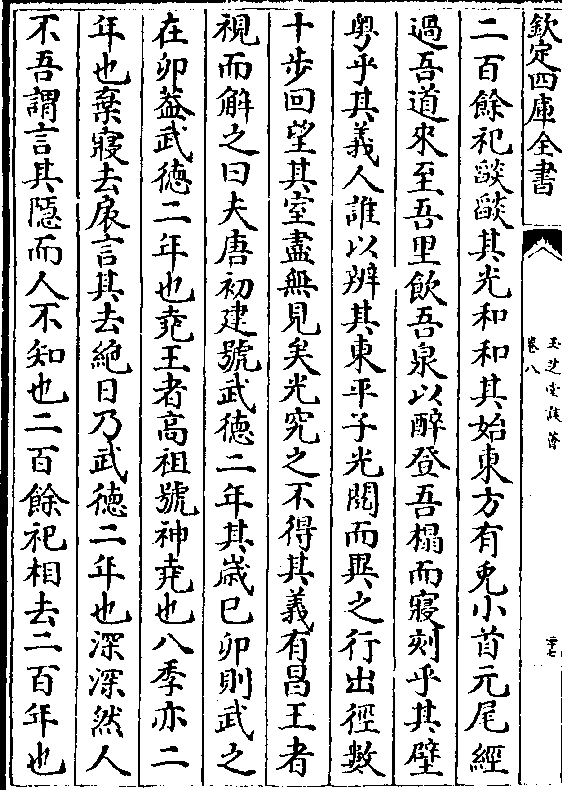 欽定四庫全書
玉芝堂談薈
卷八
二百餘祀燄燄其光和和其始東方有兎小首元尾經
過吾道來至吾里飲吾泉以醉登吾榻而寢刻乎其壁
奥乎其義人誰以辨其東平子光閲而異之行出徑數
十步回望其室盡無見矣光究之不得其義有昌王者
視而解之曰夫唐初建號武德二年其歲已卯則武之
在卯葢武德二年也堯王者髙祖號神堯也八季亦二
年也棄寢去扆言其去絶日乃武德二年也深深然人
不吾謂言其隱而人不知也二百餘祀相去二百年也